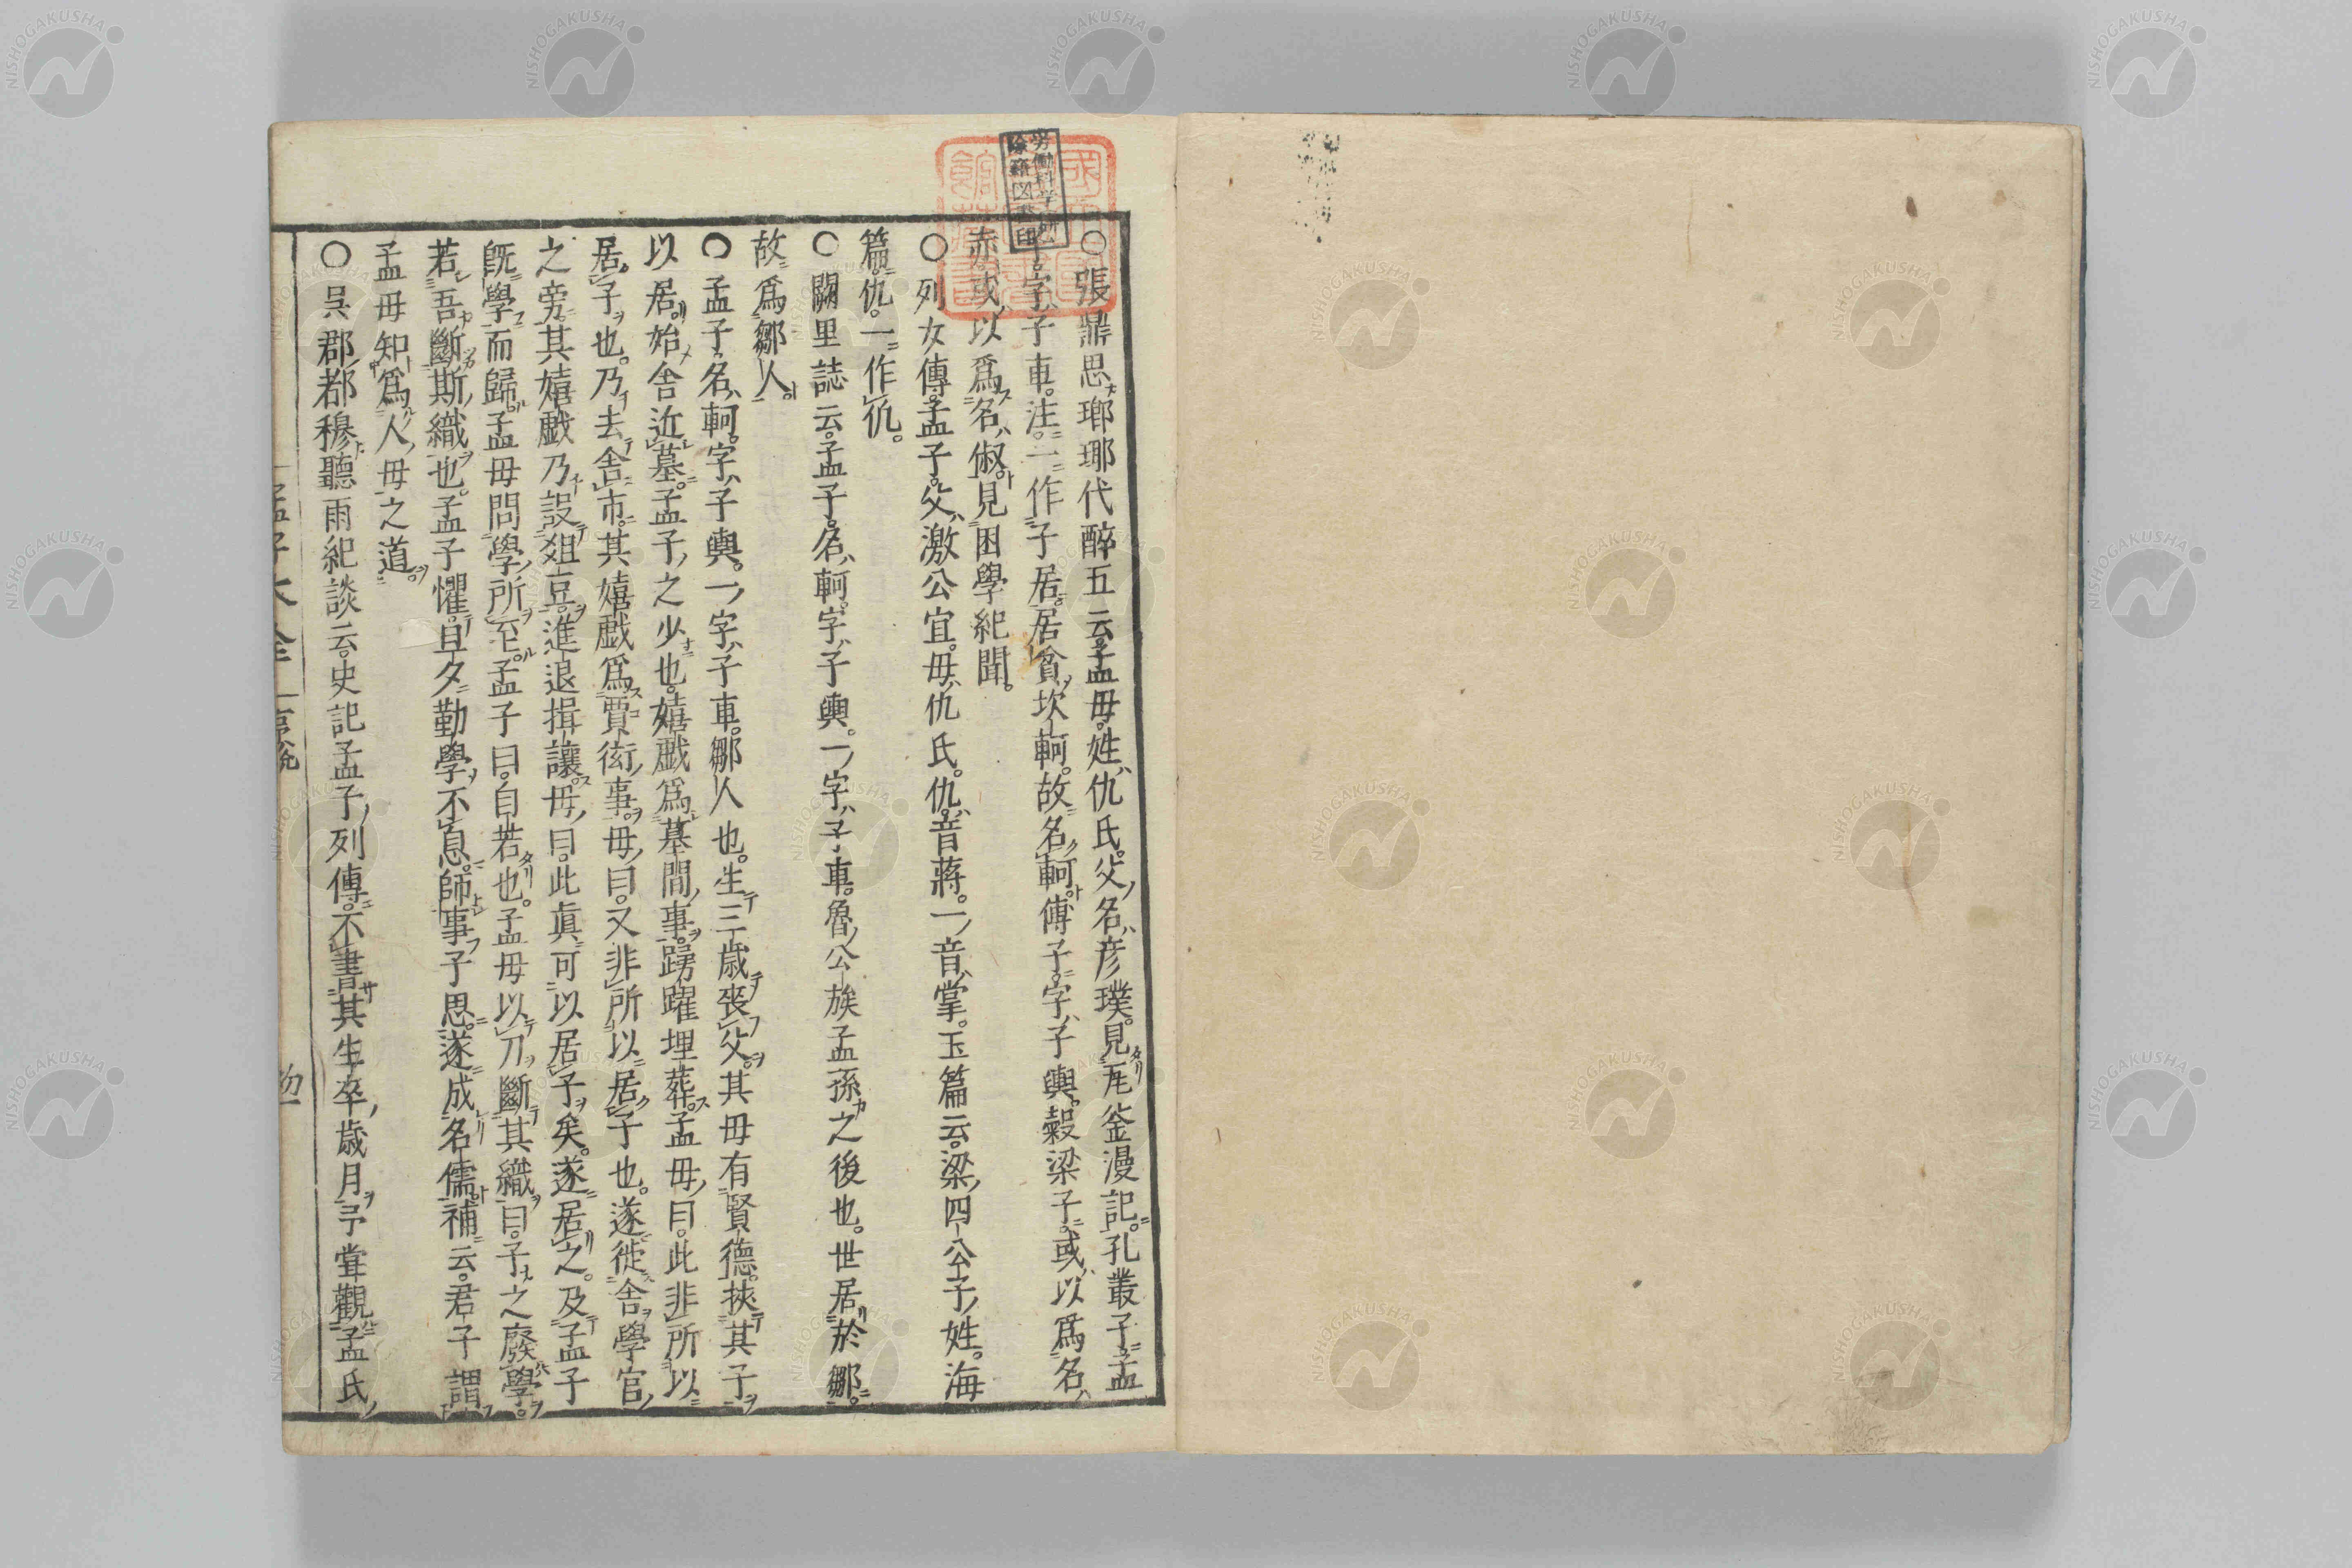 ○張鼎思瑯琊代醉五云孟母姓仇氏父名彦璞見瓦釜漫記孔叢子孟
字子車注一作子居居貧坎軻故名軻傅子字子輿穀梁子或以爲名
赤或以爲名俶見困學紀聞
○列女傳孟子父激公宜母仇氏仇音蔣一音掌玉篇云梁四公子姓海
篇仇一作㐳
○闕里誌云孟子名軻字子輿一字子車魯公族孟孫之後也世居於鄒
故爲鄒人
○孟子名軻字子輿一字子車鄒人也生三歲喪父其母有賢德挾其子
以居始舍近墓孟子之少也嬉戲爲墓間事踴躍埋葬孟母曰此非所以
居子也乃去舍市其嬉戲爲賈衒事母曰又非所以居子也遂徙舍學宮
之旁其嬉戲乃設俎豆進退揖讓母曰此真可以居子矣遂居之及孟子
既學而歸孟母問學所至孟子曰自若也孟母以刀斷其織曰子之廢學
若吾斷斯織也孟子懼旦夕勤學不息師事子思遂成名儒補云君子謂
孟母知爲人母之道
○吳郡都穆聽雨紀談云史記孟子列傳不書其生卒歲月予嘗觀孟氏
孟子大全
NISHOGAKUSHA